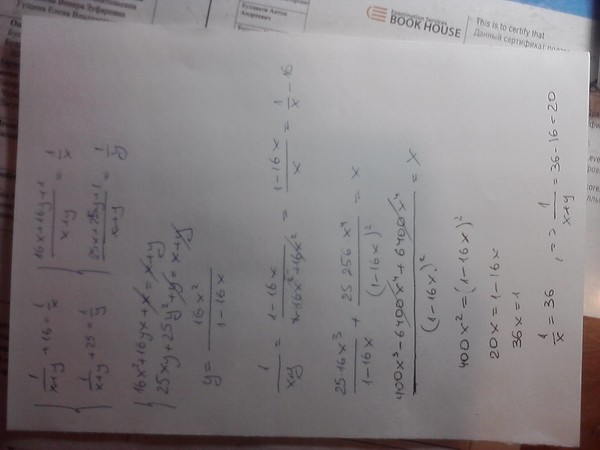 BOOK HOUSE
This is to certify that
{ 1/(x+y) + 16 = 1/x { (16x+16y+1)/(x+y) = 1/x
1/(x+y) + 25 = 1/y (25x+25y+1)/(x+y) = 1/y
{ 16x²+16yx+x = x+y
25xy+25y²+y = x+y
y = 16x²/(1-16x)
1/(x+y) = (1-16x)/(x-16x²+16x²) = (1-16x)/x = 1/x - 16
25·16x³/(1-16x) + 25·256x⁴/(1-16x)² = x
(400x³-6400x⁴+6400x⁴)/(1-16x)² = x
400x² = (1-16x)²
20x = 1-16x
36x = 1
1/x = 36 , => 1/(x+y) = 36-16 = 20